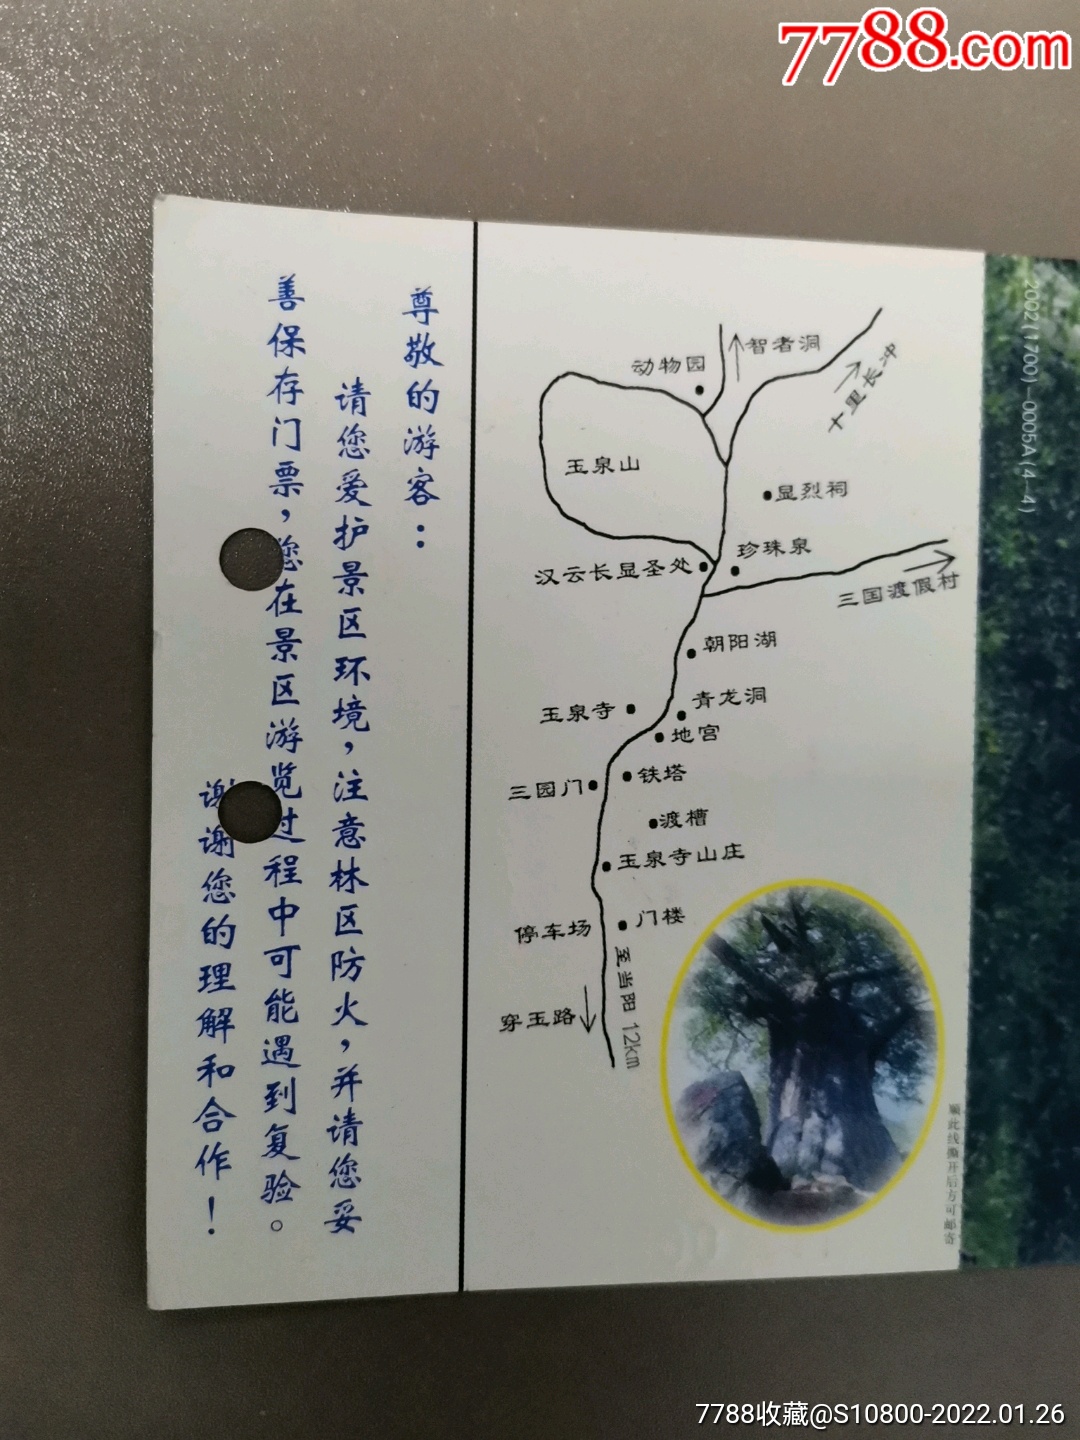 7788.com
尊敬的游客：
请您爱护景区环境，注意林区防火，并请您妥
善保存门票，您在景区游览过程中可能遇到复验。
谢谢您的理解和合作！
智者洞
动物园
十里长冲
玉泉山
显烈祠
珍珠泉
汉云长显圣处
三国渡假村
朝阳湖
青龙洞
玉泉寺
地宫
铁塔
三园门
渡槽
玉泉寺山庄
门楼
停车场
至当阳 12km
穿玉路
顺此线撕开后方可邮寄
2002(1700)—0005A(4—4)
7788收藏@S10800-2022.01.26